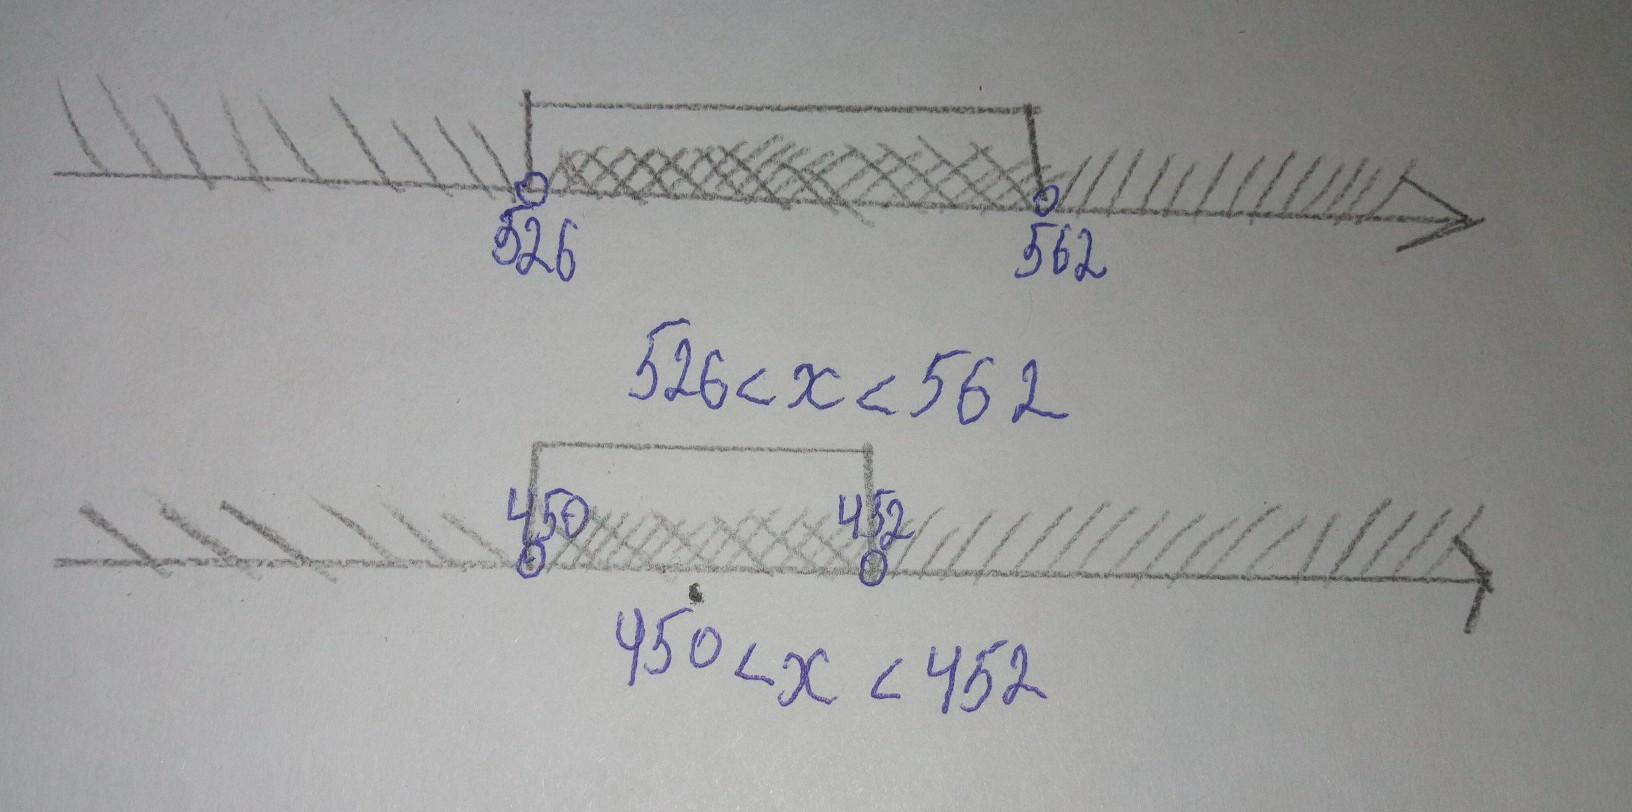 526 562
526 < x < 562
450 452
450 < x < 452